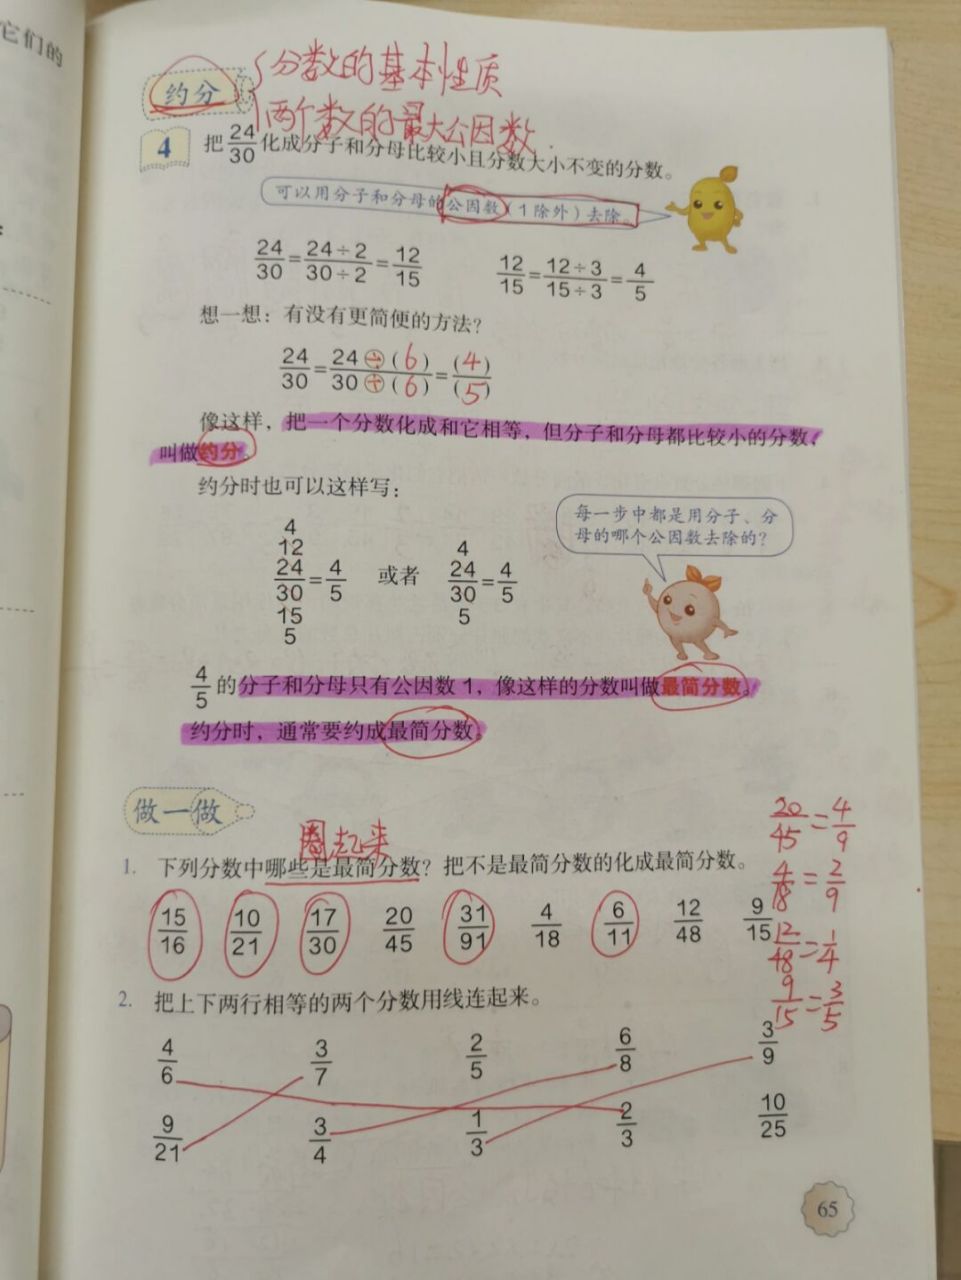 它们的
约分
分数的基本性质
两个数的最大公因数.
4 把24/30化成分子和分母比较小且分数大小不变的分数。
可以用分子和分母的公因数（1除外）去除。
24/30=24÷2/30÷2=12/15 12/15=12÷3/15÷3=4/5
想一想：有没有更简便的方法？
24/30=24÷(6)/30÷(6)=(4)/(5)
像这样，把一个分数化成和它相等，但分子和分母都比较小的分数，
叫做约分。
约分时也可以这样写：
每一步中都是用分子、分
母的哪个公因数去除的？
4
12 4
24/30=4/5 或者 24/30=4/5
15 5
5
4/5的分子和分母只有公因数1，像这样的分数叫做最简分数。
约分时，通常要约成最简分数。
做一做
圈起来
1. 下列分数中哪些是最简分数？把不是最简分数的化成最简分数。
15/16 10/21 17/30 20/45 31/91 4/18 6/11 12/48 9/15
20/45=4/9
4/18=2/9
12/48=1/4
9/15=3/5
2. 把上下两行相等的两个分数用线连起来。
4/6 3/7 2/5 6/8 3/9
9/21 3/4 1/3 2/3 10/25
65